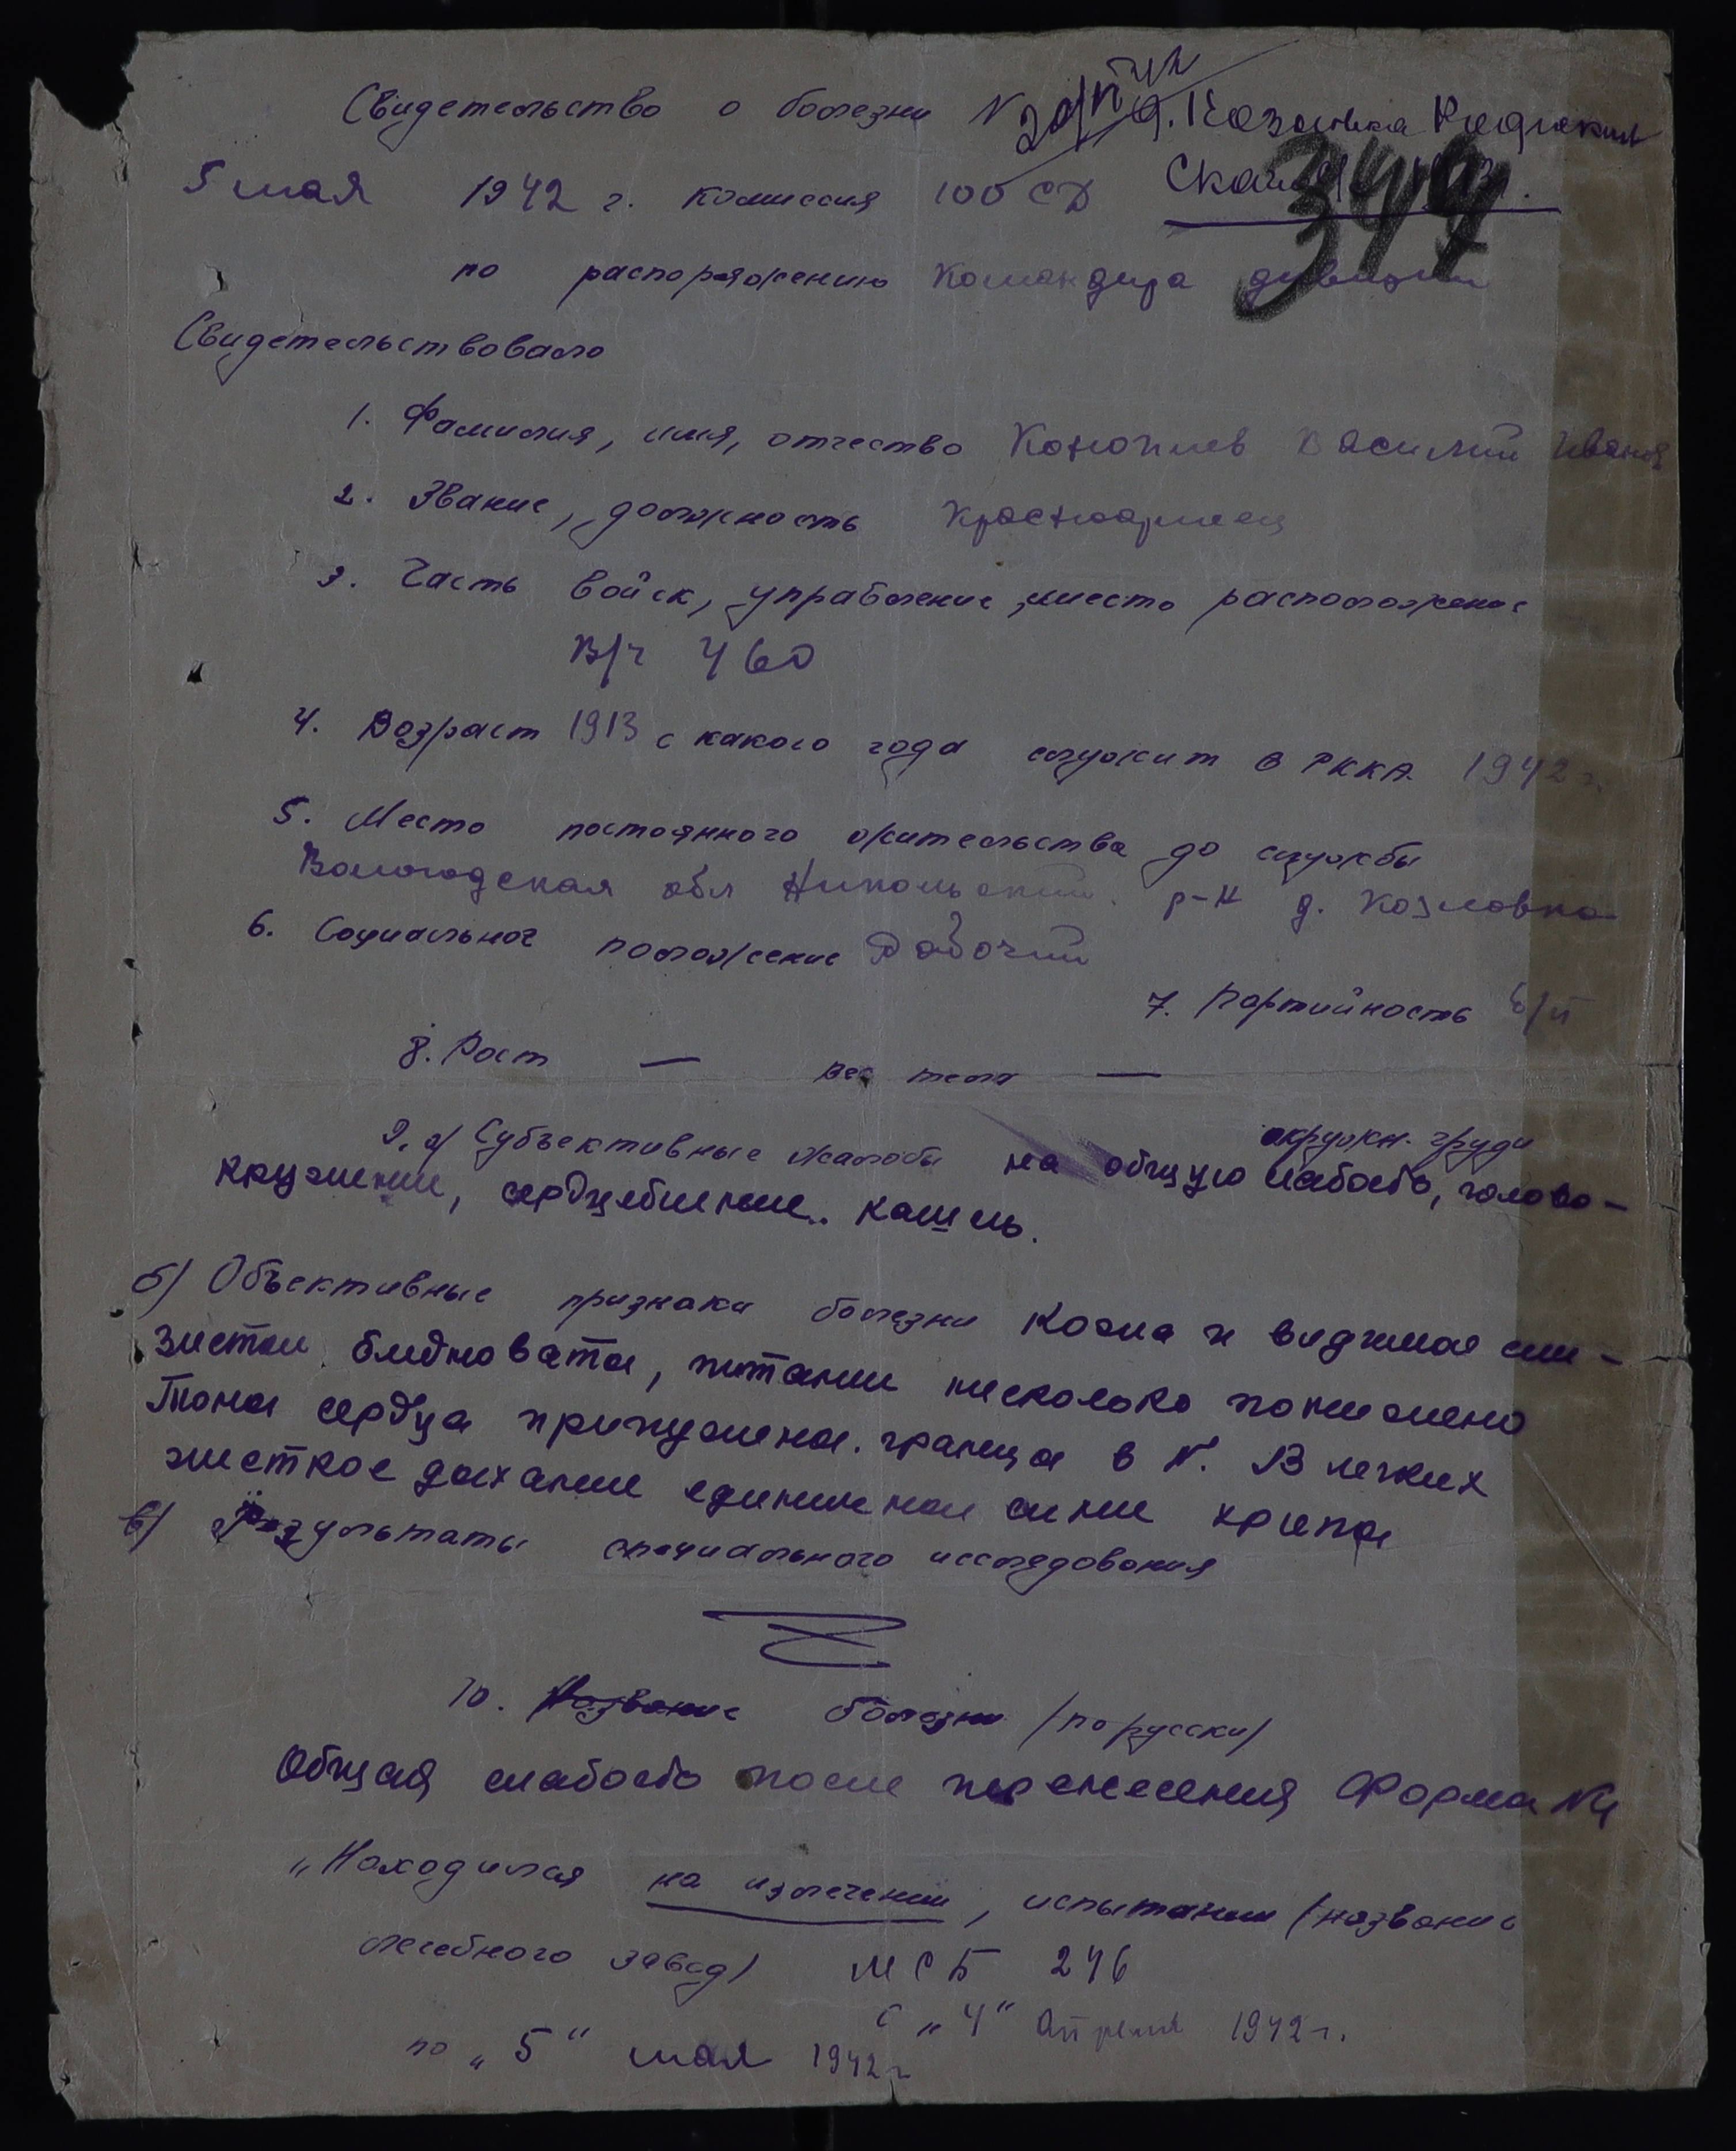 Свидетельство о болезни N
д. Козловка
349
5 мая 1942 г. комиссия 100 СД
по распоряжению Командира дивизии
Свидетельствовало
1. Фамилия, имя, отчество Василий Иванов
2. Звание, должность Красноармеец
3. Часть войск, управление, место расположение
В/ч 460
4. Возраст 1913 с какого года служит в РККА 1942 г.
5. Место постоянного жительства до службы
Вологодская обл Никольский р-н д. Козловка
6. Социальное положение Рабочий
7. Партийность б/п
8. Рост — вес тела —
окружн. груди
9. а) Субъективные жалобы на общую слабость, голово-
кружение, сердцебиение. кашель.
б) Объективные признаки болезни Кожа и видимые сли-
зистые бледноваты, питание несколько понижено
Тоны сердца приглушены. граница в N. В легких
жесткое дыхание единичные сухие хрипы
в) Результаты специального исследования
10. Название болезни /по русски/
Общая слабость после перенесения Форма N4
"Находился на излечении, испытании /название
лечебного завед/ МСБ 246
с "4" Апреля 1942 г.
по "5" мая 1942 г